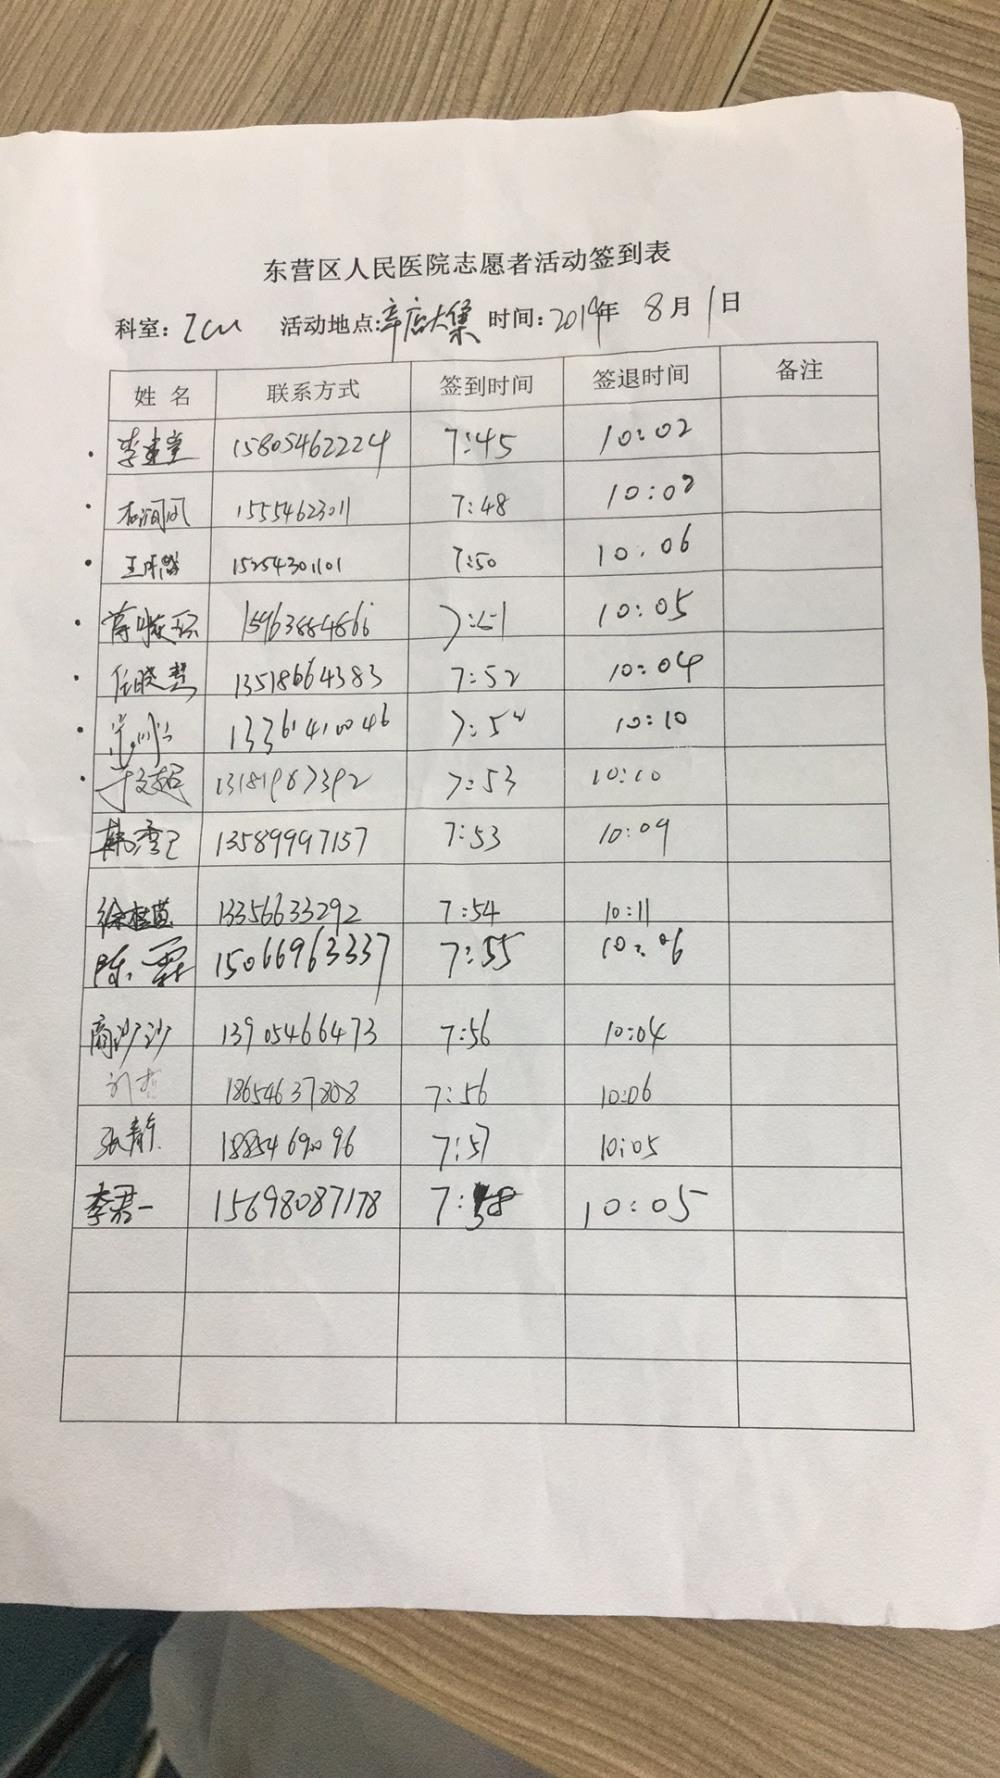 东营区人民医院志愿者活动签到表
科室: Icu 活动地点:辛店大集 时间:2019年 8月1日
姓 名 联系方式 签到时间 签退时间 备注
15805462224 7:45 10:02
15554623011 7:48 10:02
15254301101 7:50 10:06
15963884866 7:51 10:05
任晓慧 13518664383 7:52 10:04
13361410046 10:10
于文超 13181967392 7:53 10:10
韩 13589997157 7:53 10:09
徐 13356633292 7:54 10:11
陈霖 15066963337 7:55 10:06
商沙沙 13905466473 7:56 10:04
刘 18654637808 7:56 10:06
张静 18854690096 7:57 10:05
李君一 15698087178 7:58 10:05